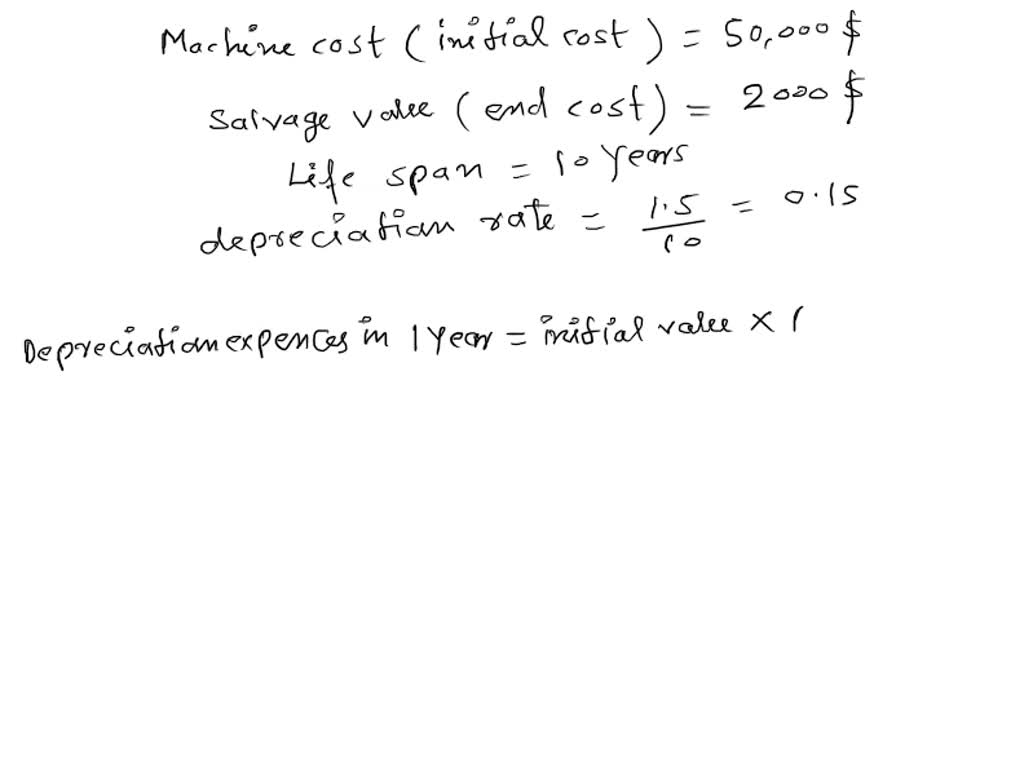 Machine cost (initial cost) = 50,000 $
Salvage value (end cost) = 2000 $
Life span = 10 years
depreciation rate = 1.5/10 = 0.15
Depreciation expences in 1 year = initial value × (